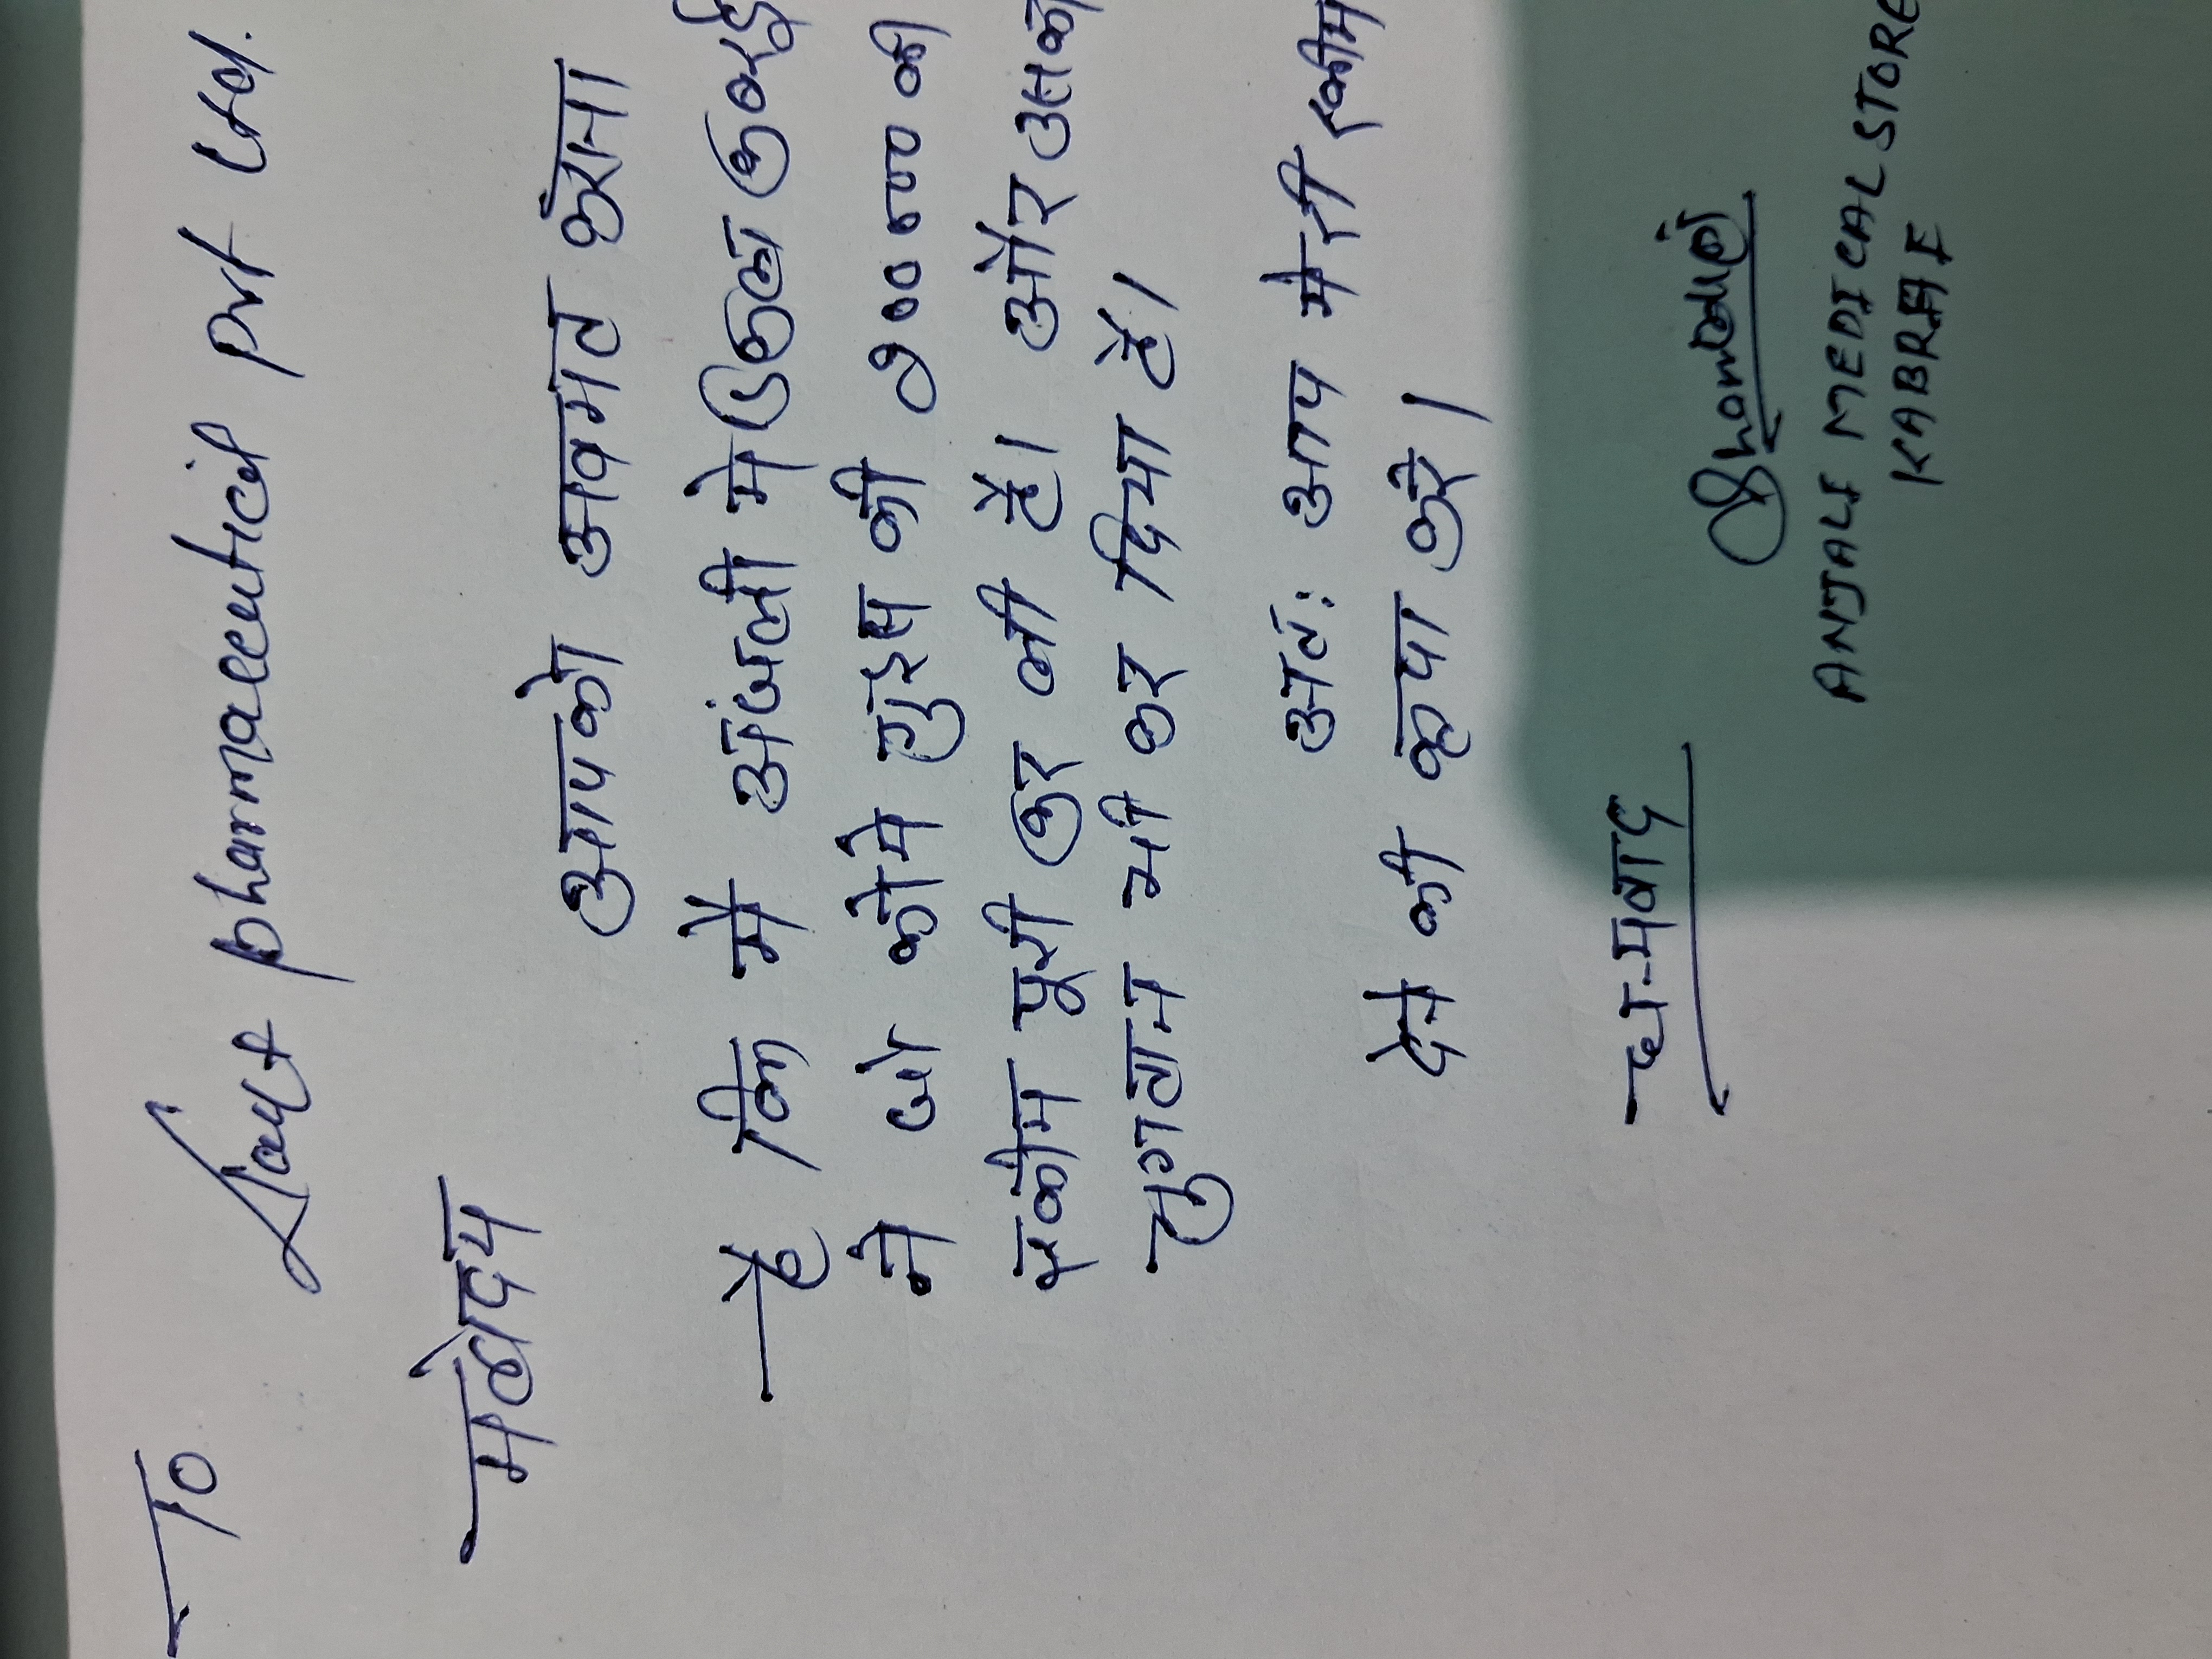 To
pharmaceutical pvt Ltd.
महोदय
आपको अवगत कराना
है कि मैं अंजली मेडिकल कबरई
ने लो कोमे लुइस की 21000 की
स्कीम पूरी कर ली है। और उसका
भुगतान भी कर दिया है।
अतः आप मेरी स्कीम
देने की कृपा करें।
धन्यवाद
ANJALI MEDICAL STORE
KABRAI